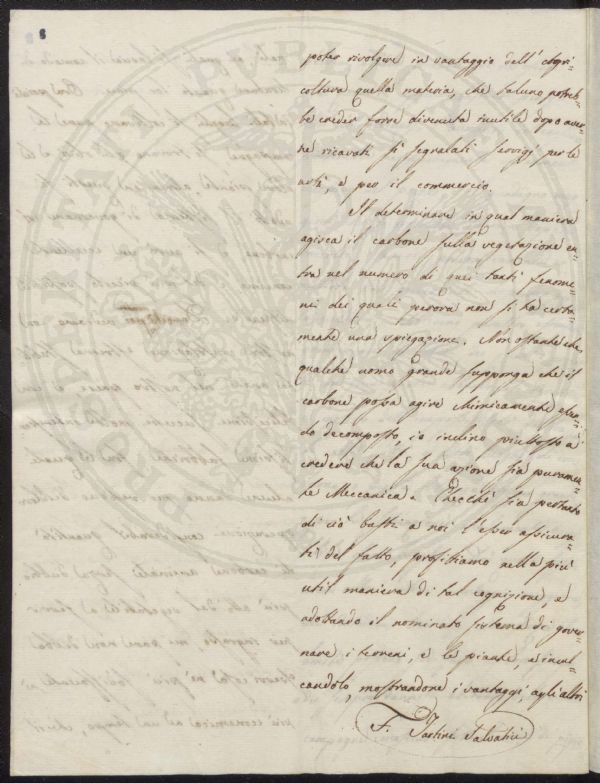 8
poter rivolgere in vantaggio dell' Agri=
coltura quella materia, che taluno potreb=
be creder forse divenuta inutile dopo aver=
ne ricavati sì segnalati servigj per le
arti, e per il commercio.
Il determinare in qual maniera
agisca il carbone sulla vegetazione en=
tra nel numero di quei tanti fenome=
ni dei quali perora non si ha certa=
mente una spiegazione. Non ostante che
qualche uomo grande supponga che il
carbone possa agire chimicamente essen=
do decomposto, io inclino piuttosto a
credere che la sua azione sia puramen=
te Meccanica. Checchè sia pertanto
di ciò basti a noi l'esser assicura=
ti del fatto, profittiamo nella più
util maniera di tal cognizione, e
adottando il nominato sistema di gover=
nare i terreni, e le piante, e incul=
candolo, mostrandone i vantaggi, agli altri
F. Tartini Salvatici